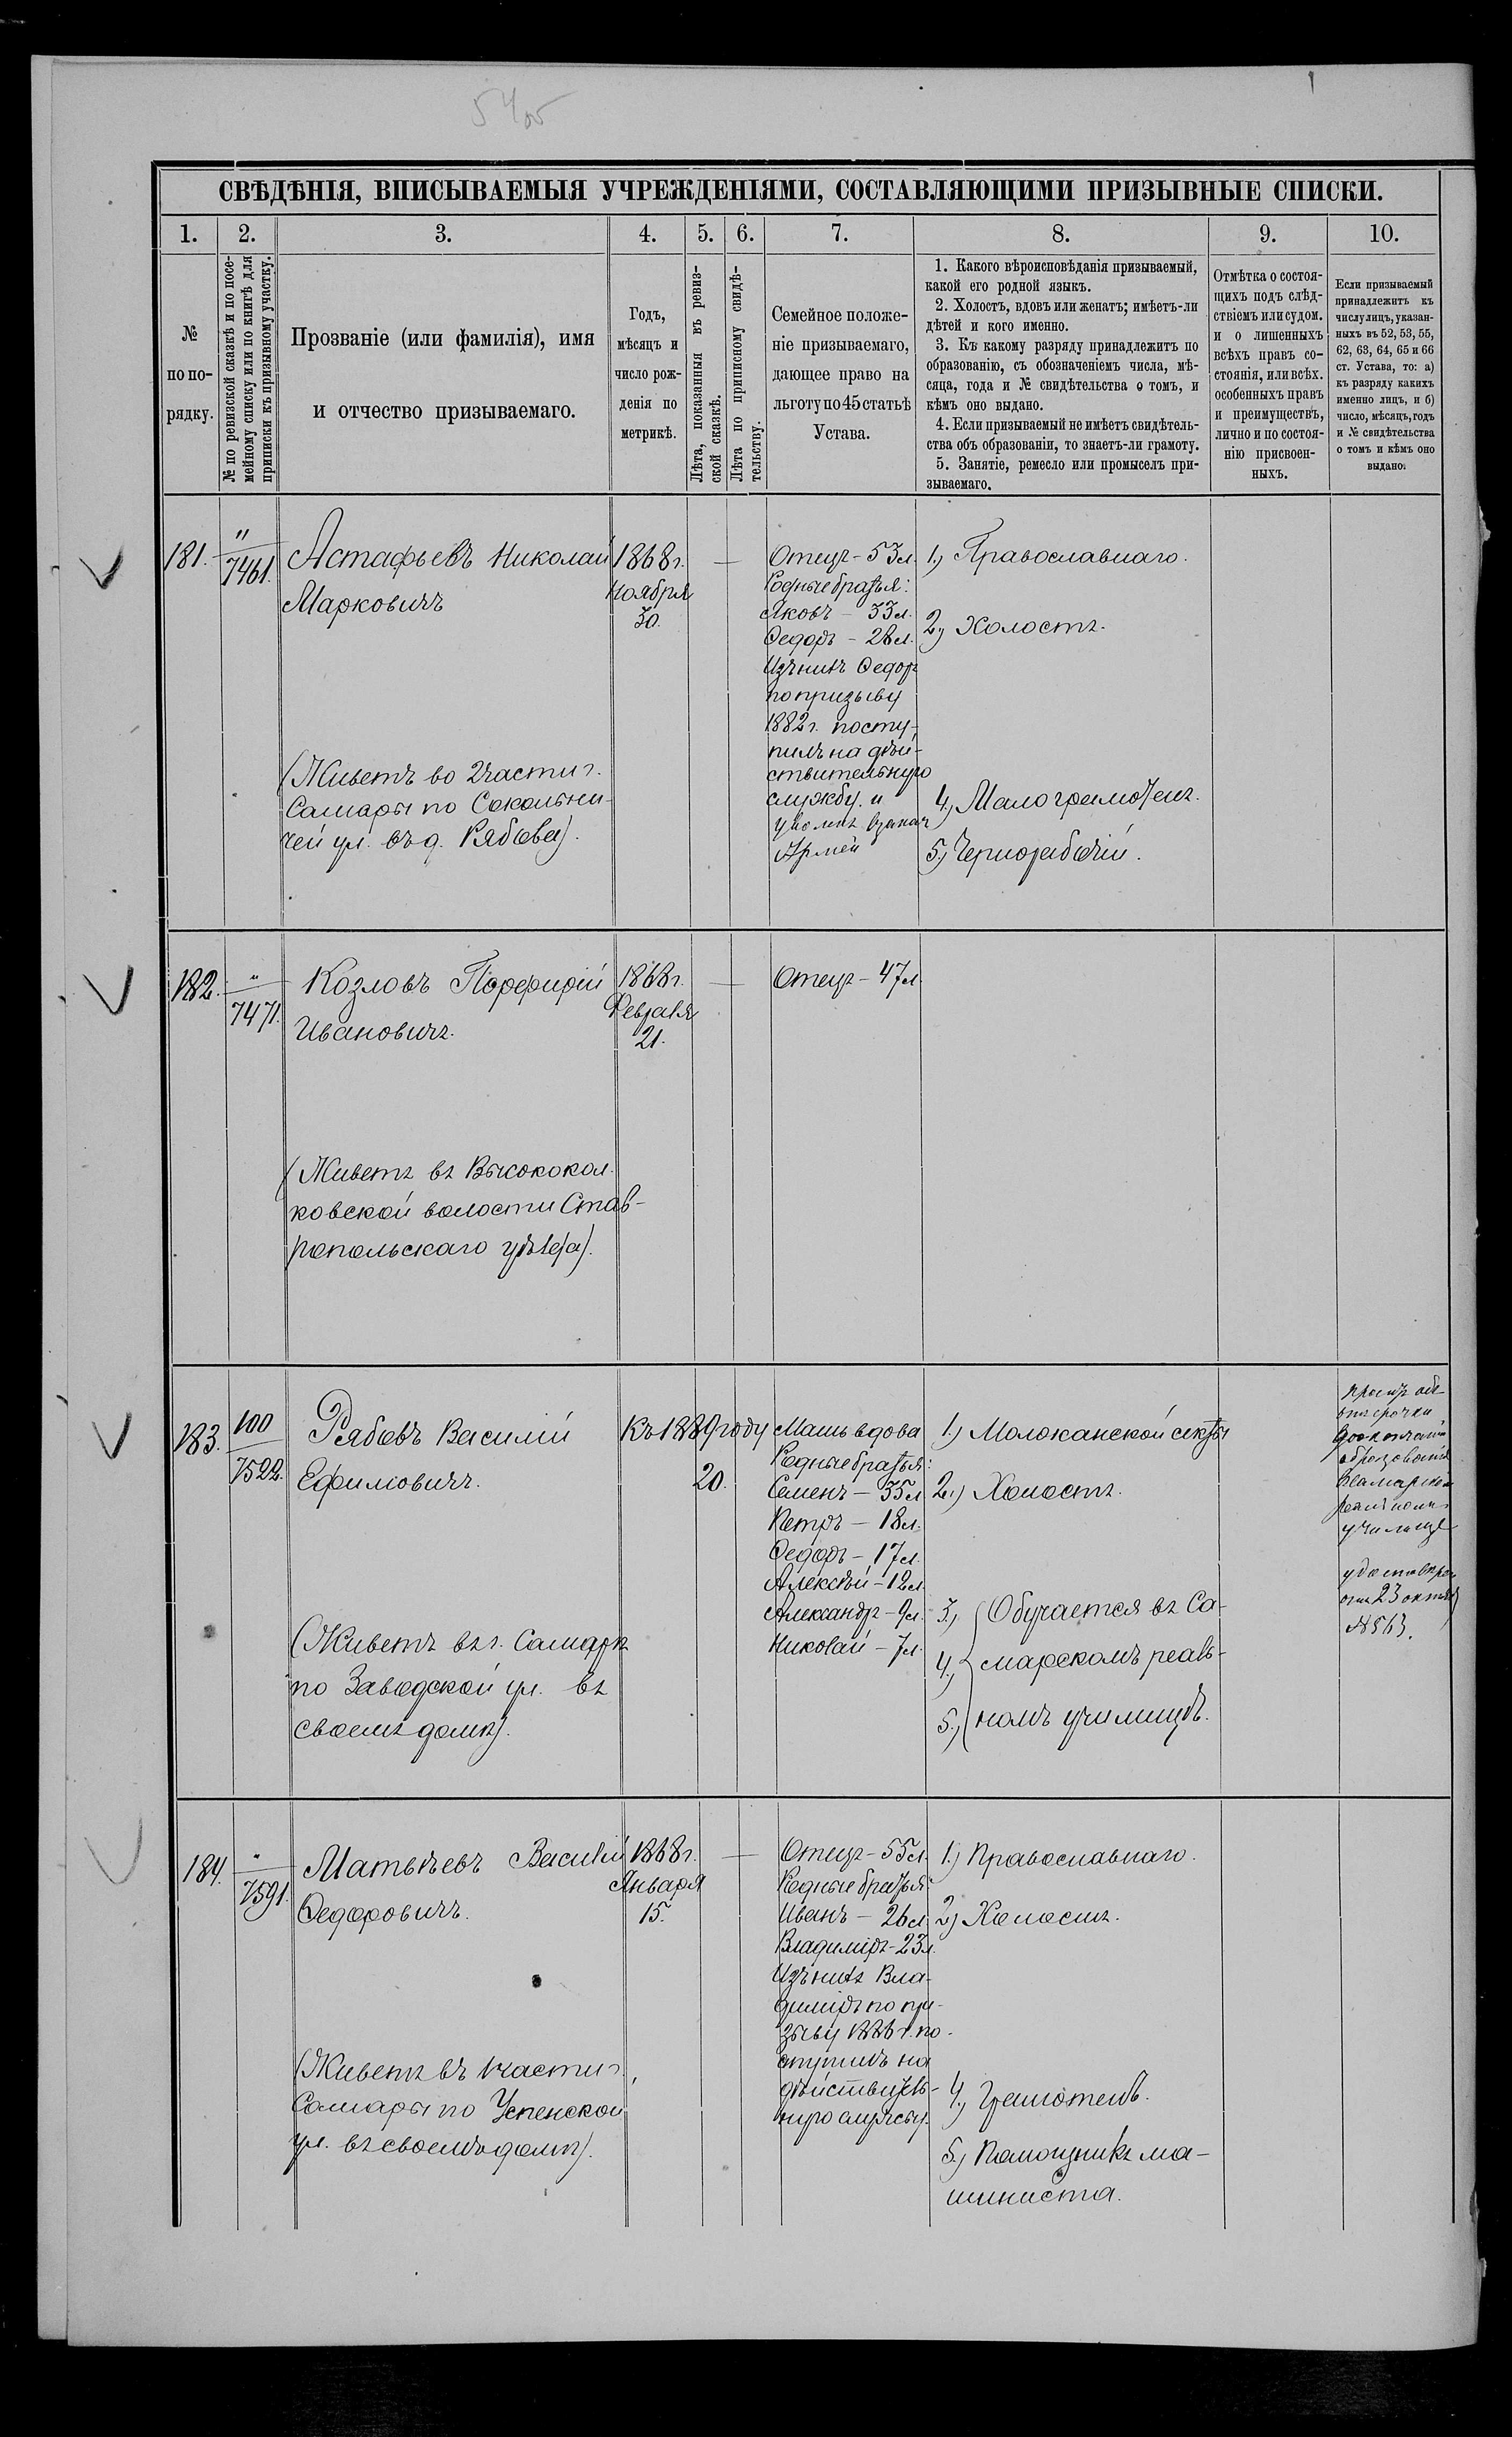 СВѢДѢНІЯ, ВПИСЫВАЕМЫЯ УЧРЕЖДЕНІЯМИ, СОСТАВЛЯЮЩИМИ ПРИЗЫВНЫЕ СПИСКИ.
1.
2.
3.
4.
5.
6.
7.
8.
9.
10.
№
по по-
рядку.
№ по ревизской сказкѣ и по посе-
мейному списку или по книгѣ для
приписки къ призывному участку.
Прозваніе (или фамилія), имя
и отчество призываемаго.
Годъ,
мѣсяцъ и
число рож-
денія по
метрикѣ.
Лѣта, показанныя въ ревиз-
ской сказкѣ.
Лѣта по приписному свидѣ-
тельству.
Семейное положе-
ніе призываемаго,
дающее право на
льготу по 45 статьѣ
Устава.
1. Какого вѣроисповѣданія призываемый,
какой его родной языкъ.
2. Холостъ, вдовъ или женатъ; имѣетъ-ли
дѣтей и кого именно.
3. Къ какому разряду принадлежитъ по
образованію, съ обозначеніемъ числа, мѣ-
сяца, года и № свидѣтельства о томъ, и
кѣмъ оно выдано.
4. Если призываемый не имѣетъ свидѣтель-
ства объ образованіи, то знаетъ-ли грамоту.
5. Занятіе, ремесло или промыселъ при-
зываемаго.
Отмѣтка о состоя-
щихъ подъ слѣд-
ствіемъ или судом.
и о лишенныхъ
всѣхъ правъ со-
стоянія, или всѣх.
особенныхъ правъ
и преимуществъ,
лично и по состоя-
нію присвоен-
ныхъ.
Если призываемый
принадлежитъ къ
числу лицъ, указан-
ныхъ въ 52, 53, 55,
62, 63, 64, 65 и 66
ст. Устава, то: а)
къ разряду какихъ
именно лицъ, и б)
число, мѣсяцъ, годъ
и № свидѣтельства
о томъ и кѣмъ оно
выдано.
181.
"
7461.
Астафьевъ Николай
Марковичъ
(Живетъ во 2 части г.
Самары по Сокольни-
чей ул. въ д. Рябова).
1868 г.
Ноября
30.
—
Отецъ - 53 л.
Родные братья:
Яковъ - 33 л.
Федоръ - 28 л.
Изъ нихъ Федоръ
по призыву
1882 г. посту-
пилъ на дѣй-
ствительную
службу и
Арміи
1.) Православнаго.
2.) Холостъ.
4.) Малограмотенъ.
5.) Чернорабочій.
182.
"
7471.
Козловъ Порфирій
Ивановичъ.
(Живетъ въ Высококол-
ковской волости Став-
ропольскаго уѣзда).
1868 г.
Февраля
21.
—
Отецъ - 47 л.
183.
100
7522.
Рябовъ Василій
Ефимовичъ.
(Живетъ въ г. Самарѣ
по Заводской ул. въ
своемъ домѣ).
Къ 1889 году
20.
Мать вдова
Родные братья:
Семенъ - 35 л.
Петръ - 18 л.
Федоръ - 17 л.
Алексѣй - 12 л.
Александръ - 9 л.
Николай - 7 л.
1.) Молоканской секты
2.) Холостъ.
3.) Обучается въ Са-
4.) марскомъ реаль-
5.) номъ училищѣ.
образованія
училище
23 октяб
№ 563.
184.
"
7591.
Матвѣевъ Василій
Федоровичъ.
(Живетъ въ 1 части г.
Самары по Успенской
ул. въ своемъ домѣ).
1868 г.
Января
15.
—
Отецъ - 55 л.
Родные братья:
Иванъ - 26 л.
Владиміръ - 23 л.
Изъ нихъ Вла-
диміръ по при-
зыву 1886 г. по-
ступилъ на
дѣйствитель-
ную службу.
1.) Православнаго.
2.) Холостъ.
4.) Грамотенъ.
5.) Помощникъ ма-
шиниста.